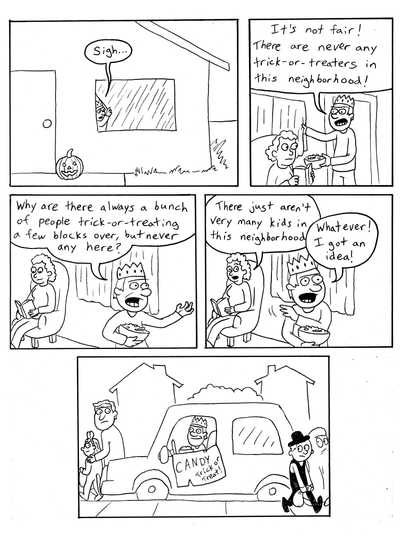 Sigh...
It's not fair!
There are never any
trick-or-treaters in
this neighborhood!
Why are there always a bunch
of people trick-or-treating
a few blocks over, but never
any here?
There just aren't
very many kids in
this neighborhood
Whatever!
I got an
idea!
CANDY
trick or
treat!